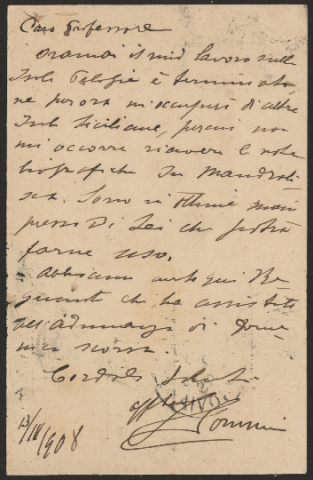 Caro Professore
Oramai il mio lavoro sulle
Isole Pelagie è terminato,
ne per ora mi occuperò di altre
Isole Siciliane, perciò non
mi occorre riavere le note
biografiche su Mandrali-
sca. Sono in ottime mani
presso di Lei che potrà
farne uso.
Abbiamo avuto qui Be-
guinot che ha assistito
all'adunanza di Dome-
nica scorsa.
Cordiali saluti
aff
Sommier
13/IV/908